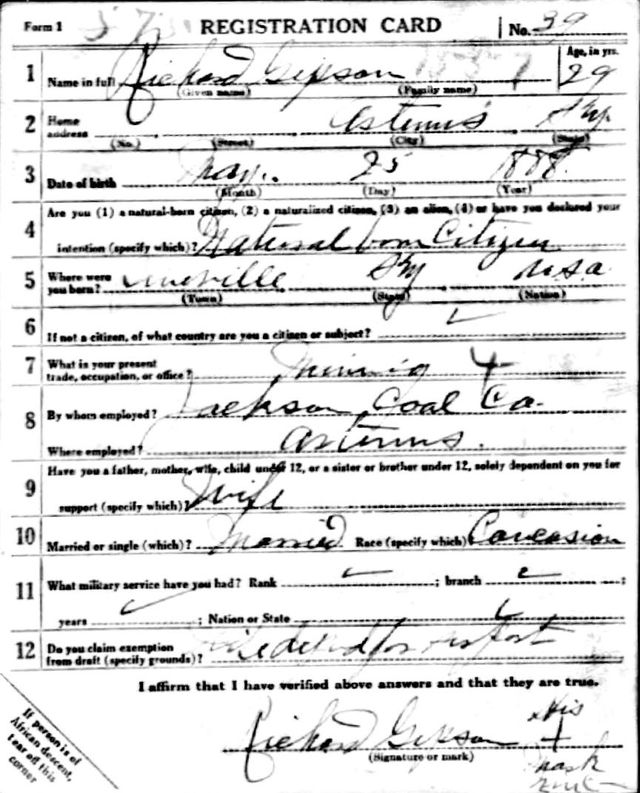 Form 1 REGISTRATION CARD No. 39
1 Name in full Richard Gipson Age, in yrs. 29
(Given name) (Family name)
2 Home address Artemus Ky.
(No.) (Street) (City) (State)
3 Date of birth May 25 1888
(Month) (Day) (Year)
4 Are you (1) a natural-born citizen, (2) a naturalized citizen, (3) an alien, (4) or have you declared your
intention (specify which)? Natural born Citizen
5 Where were you born? Ky U.S.a
(Town) (State) (Nation)
6 If not a citizen, of what country are you a citizen or subject? ✓
7 What is your present trade, occupation, or office? Mining
8 By whom employed? Jackson Coal Co.
Where employed? Artemus.
9 Have you a father, mother, wife, child under 12, or a sister or brother under 12, solely dependent on you for
support (specify which)? Wife
10 Married or single (which)? Married Race (specify which) Caucasion
11 What military service have you had? Rank ✓ ; branch ✓ ;
years ✓ ; Nation or State ✓
12 Do you claim exemption from draft (specify grounds)?
I affirm that I have verified above answers and that they are true.
Richard Gipson his
+
(Signature or mark) mark
If person is of
African descent,
tear off this
corner